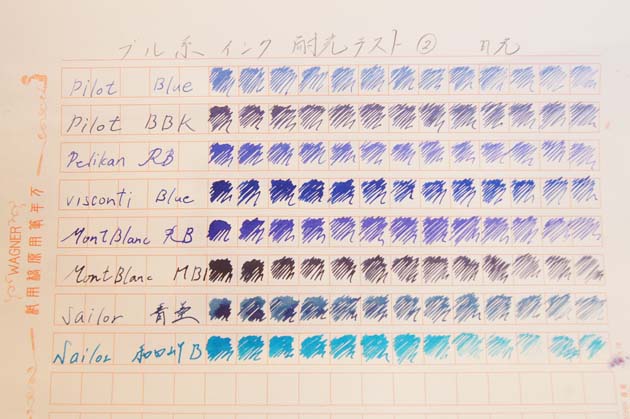 ブルー系 インク 耐光テスト ② 日光
Pilot Blue
Pilot BBK
Pelikan RB
Visconti Blue
MontBlanc RB
MontBlanc MBK
Sailor 青墨
Sailor B
WAGNER
萬年筆用原稿用紙